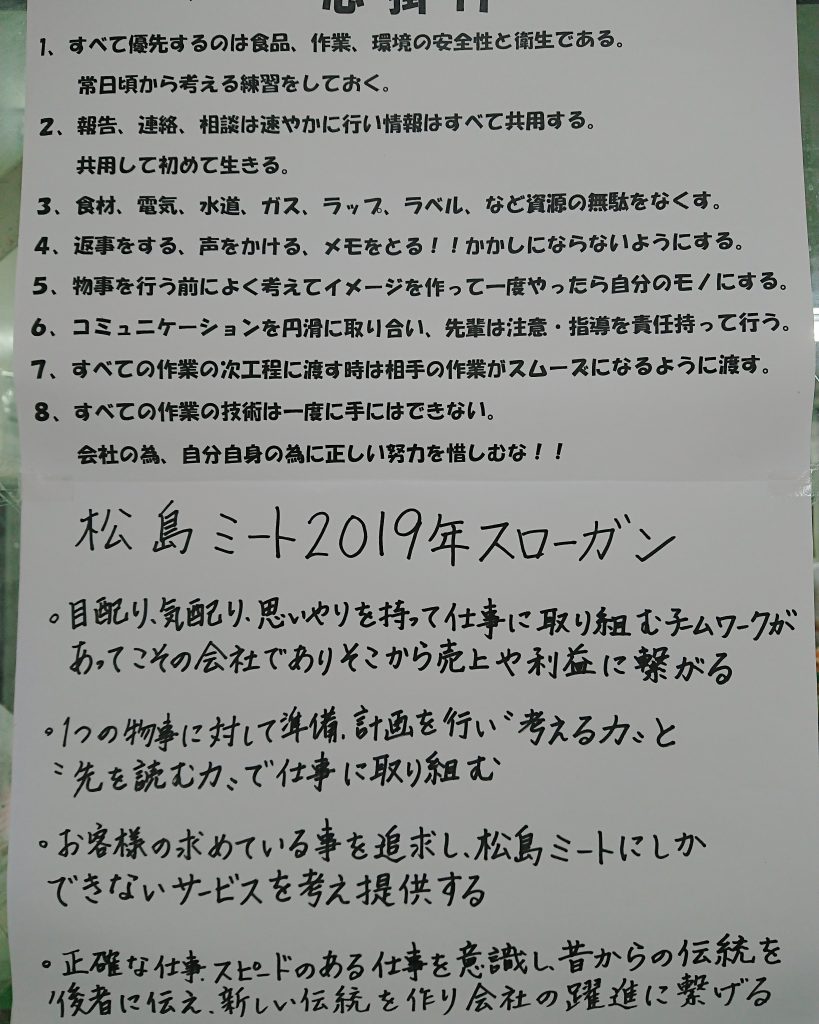 1、すべて優先するのは食品、作業、環境の安全性と衛生である。
常日頃から考える練習をしておく。
2、報告、連絡、相談は速やかに行い情報はすべて共用する。
共用して初めて生きる。
3、食材、電気、水道、ガス、ラップ、ラベル、など資源の無駄をなくす。
4、返事をする、声をかける、メモをとる！！かかしにならないようにする。
5、物事を行う前によく考えてイメージを作って一度やったら自分のモノにする。
6、コミュニケーションを円滑に取り合い、先輩は注意・指導を責任持って行う。
7、すべての作業の次工程に渡す時は相手の作業がスムーズになるように渡す。
8、すべての作業の技術は一度に手にはできない。
会社の為、自分自身の為に正しい努力を惜しむな！！
松島ミート2019年スローガン
。目配り、気配り、思いやりを持って仕事に取り組むチームワークが
あってこその会社でありそこから売上や利益に繋がる
。1つの物事に対して準備、計画を行い〝考える力〟と
〝先を読む力〟で仕事に取り組む
。お客様の求めている事を追求し、松島ミートにしか
できないサービスを考え提供する
。正確な仕事、スピードのある仕事を意識し、昔からの伝統を
後者に伝え、新しい伝統を作り会社の躍進に繋げる